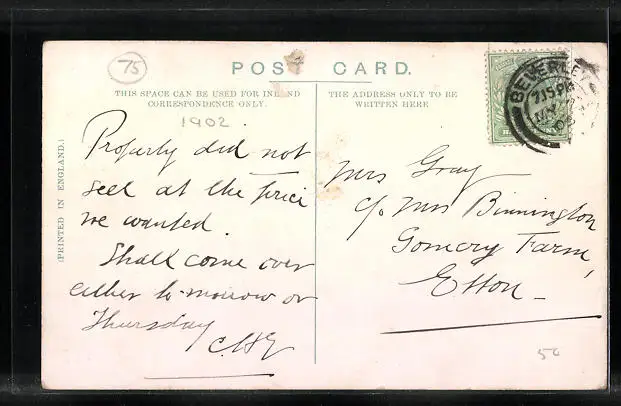 75
POST CARD.
THIS SPACE CAN BE USED FOR INLAND
CORRESPONDENCE ONLY.
THE ADDRESS ONLY TO BE
WRITTEN HERE
(PRINTED IN ENGLAND.)
1902
Property did not
sell at the price
we wanted.
Shall come over
either to-morrow or
Thursday
Mrs Gray
c/o Mrs Binnington
Farm,
Etton
BEVERLEY
7.15 PM
50